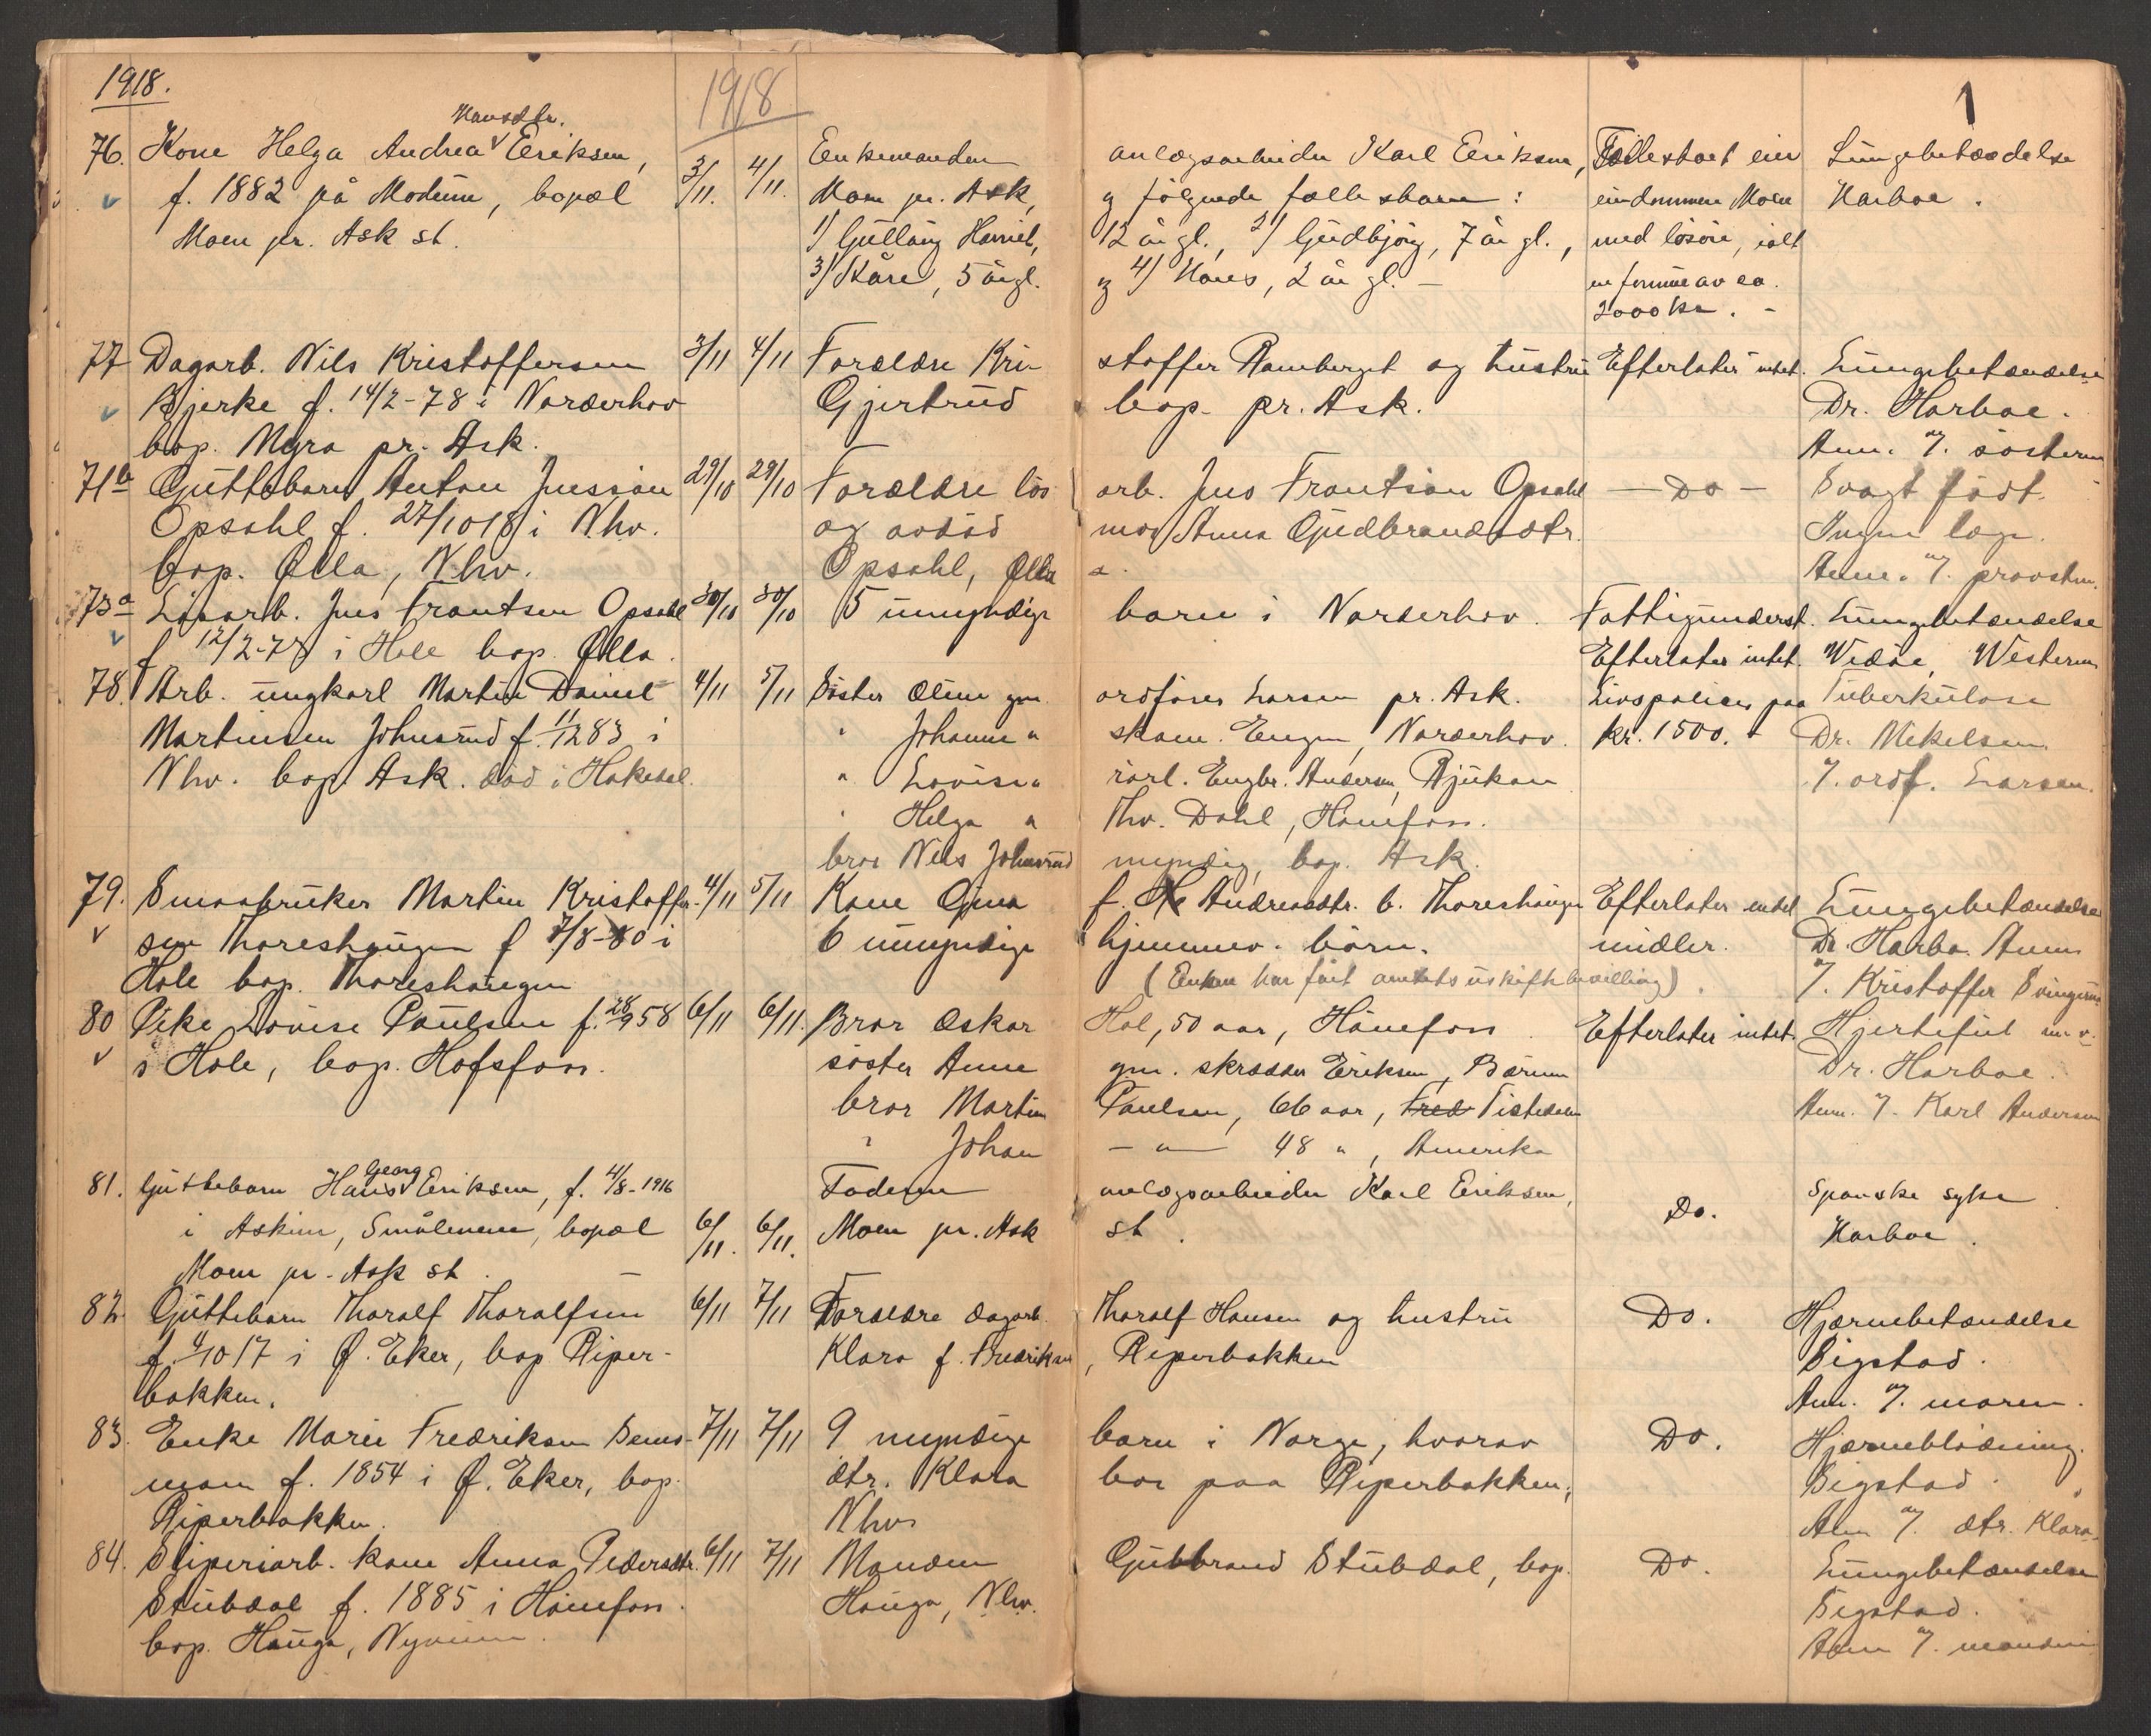 1918.
1918
1
Hansdtr.
76. Kone Helga Andrea Eriksen, 3/11. 4/11. Enkemanden anlægsarbeider Karl Eriksen, Fællesboet eier Lungebetændelse
f. 1882 på Modum, bopæl Moen pr. Ask, og følgende fællesbarn: eiendommen Moen Harboe.
Moen pr. Ask st. 1) Gullaug Harriet, 12 år gl., 2) Gudbjørg, 7 år gl., med løsøre, ialt
3) Kåre, 5 år gl. og 4) Hans, 2 år gl. - en formue av ca.
2000 kr. -
77 Dagarb. Nils Kristoffersen 3/11 4/11 Forældre Kri- stoffer Ramberget og hustru Efterlater intet. Lungebetændelse
Bjerke f. 14/2-78 i Norderhov Gjertrud bop. pr. Ask. Dr. Harboe.
bop. Myra pr. Ask. Anm. av søsteren
71b Guttebarn Anton Jensson 29/10 29/10 Forældre løs- arb. Jens Frantsion Opsahl - Do - Svagt født.
Opsahl f. 27/10 18 i Nhv. og avdød mor Anna Gudbrandsdtr. Ingen læge.
bop. Ølla, Nhv. Opsahl, Ølla Anm. av provsten.
73a Løsarb. Jens Frantsen Opsahl 30/10 30/10 5 umyndige barn i Norderhov. Fattigunderst. Lungebetændelse
f 12/2-78 i Hole bop. Ølla. Efterlater intet.
78. Arb. ungkarl Martin Daniel 4/11 5/11 Søster Oline gm. ordfører Larsen pr. Ask. Livspolicer paa Tuberkulose
Martinsen Johnsrud f. 1283 i " Johanne " skom. Engen, Norderhov. kr. 1500. Dr. Mikelsen
Nhv. bop. Ask. død i Hakedal. " Lovise " rørl. Engbr. Andersen, Rjukan ordf. Larsen.
" Helga " Thv. Dahl, Hønefoss.
bror Nils Johnsrud myndig, bop. Ask.
79. Smaabruker Martin Kristoffer- 4/11 5/11 Kone Gina f. Andreasdtr. b. Thoreshaugen Efterlater intet Lungebetændelse
sen Thoreshaugen f 7/8-80 i 6 umyndige hjemmev. børn. midler. Dr. Harbo. Anm
Hole bop. Thoreshaugen (Enken har fåt amtets uskiftebevilling). Kristoffer
80 Pike Lovise Paulsen f. 28/9 58 6/11 6/11. Bror Oskar Hol, 50 aar, Hønefoss. Efterlater intet. Hjertefeil m. v.
i Hole, bop. Hofsfoss. søster Anne gm. skrædder Eriksen, Bærum Dr. Harboe.
bror Martin Paulsen, 66 aar, Fred Tistedalen Anm. av Karl Andersen
" Johan - " - 48 ", Amerika
Georg
81. Guttebarn Hans Eriksen, f. 4/8-1916 Faderen anlægsarbeider Karl Eriksen, Do. Spanske syke
i Askim, Smålenene, bopæl 6/11. 6/11. Moen pr. Ask st. Harboe.
Moen pr. Ask st.
82. Guttebarn Thoralf Thoralfsen 6/11 7/11 Forældre dagarb. Thoralf Hansen og hustru Do. Hjernebetændelse
f. 1/10 17 i Ø. Eker, bop Riper- Klara f. Fredriksen, Riperbakken Sigstad.
bakken. Anm. av moren.
83. Enke Marie Fredriksen Bems- 7/11 7/11 9 myndige barn i Norge, hvorav Do. Hjerneblødning.
mom f. 1854 i Ø. Eker, bop. dtr. Klara bor paa Riperbakken, Sigstad.
Riperbakken. Nhv. Anm av dtr. Klara.
84. Sliperiarb. kone Anna Pedersdtr. 6/11 7/11 Manden Gubbrand Stubdal, bop. Do. Lungebetændelse
Stubdal f. 1885 i Hønefoss. Hauga, Nhv. Sigstad.
bop. Hauga, Anm av manden